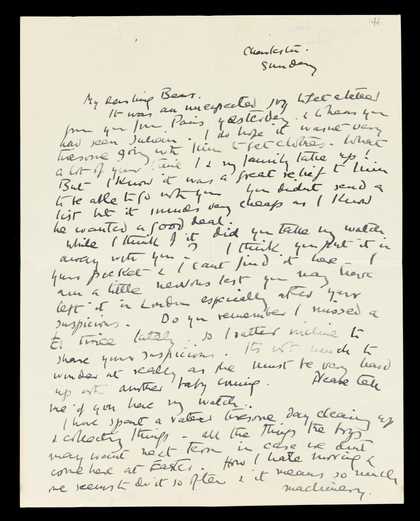 Charleston.
Sunday
My darling Bear.
It was an unexpected joy to get a letter
from you from Paris yesterday, & to hear you
had seen Julian. I do hope it wasn't very
tiresome going with him to get clothes. What
a lot of your time I & my family take up!
But I know it was a great relief to him
to be able to go with you. You didn't send a
list but it sounds very cheap as I know
he wanted a good deal.
While I think of it did you take my watch
away with you - I think you put it in
your pocket & I can't find it here. I
am a little nervous lest you may have
left it in London especially after your
suspicions. Do you remember I missed a
£1 twice lately so I rather incline to
share your suspicions. It's not much to
wonder at really as she must be very hard
up with another baby coming. Please tell
me if you have my watch.
I have spent a rather tiresome day clearing up
& collecting things - all the things the boys
may want next term in case we don't
come here at Easter. How I hate moving &
we seem to do it so often & it means so much
machinery.